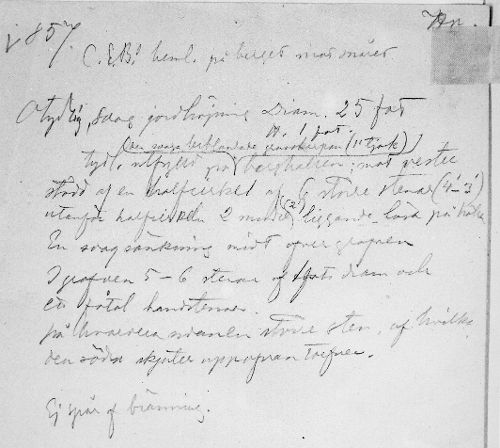 1857.
C. E. B:s heml. på berget mot snåret
Otydlig, svag jordhöjning Diam. 25 fot
H. 1 fot.
tydl. utfylld; mot vester
stödd af en halfcirkel af 6 större stenar (4'-3')
utanför halfcirkeln 2 mindre (2') liggande lösa på
En svag sänkning midt öfver grafven
I grafven 5-6 stenar af fots diam och
ett fåtal handstenar.
på hvardera ändan större sten, af hvilka
den södra skjuter upp ofvan torfven.
Ej spår af bränning.